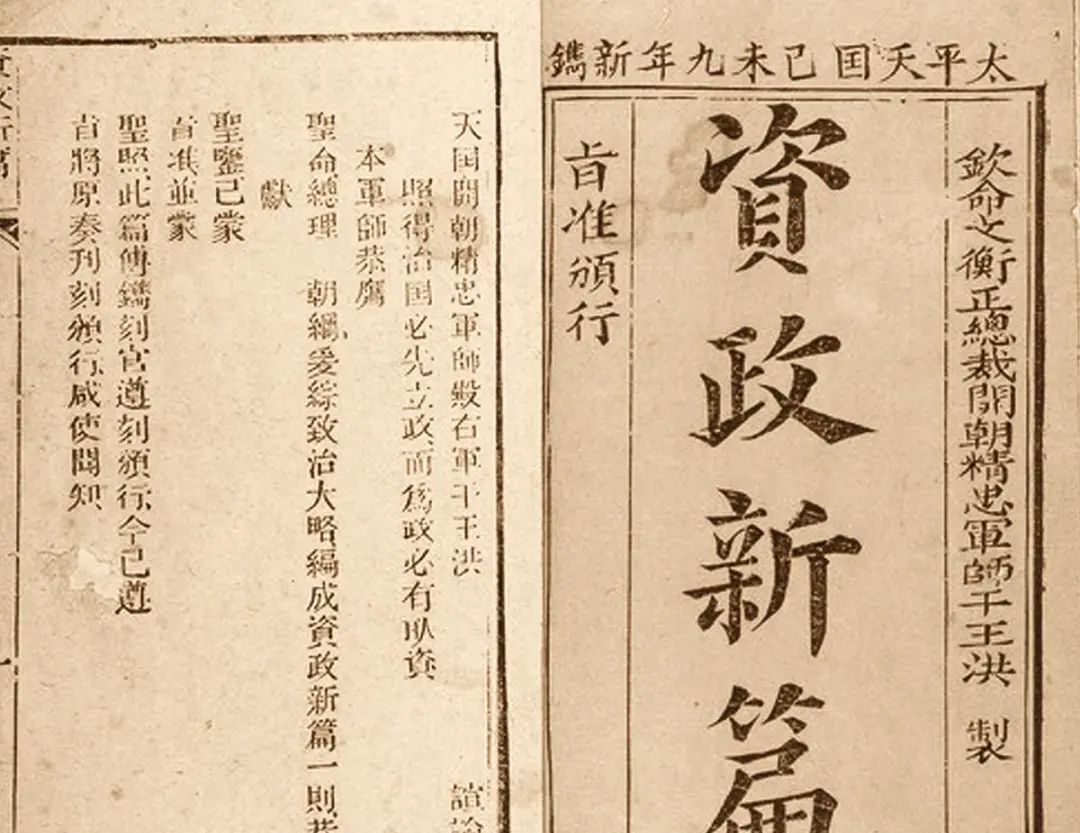 太平天囯己未九年新鐫
欽命文衡正總裁開朝精忠軍師干王洪 製
資政新篇
旨准頒行
天囯開朝精忠軍師殿右軍干王洪 諠諭
照得治囯必先立政而爲政必有㕥資
本軍師恭膺
聖命總理 朝綱爰綜致治大略編成資政新篇一則恭
獻
聖鑒已蒙
旨准並蒙
聖照此篇傳鐫刻官遵刻頒行今已遵
旨將原奏刊刻頒行咸使聞知
資政新篇